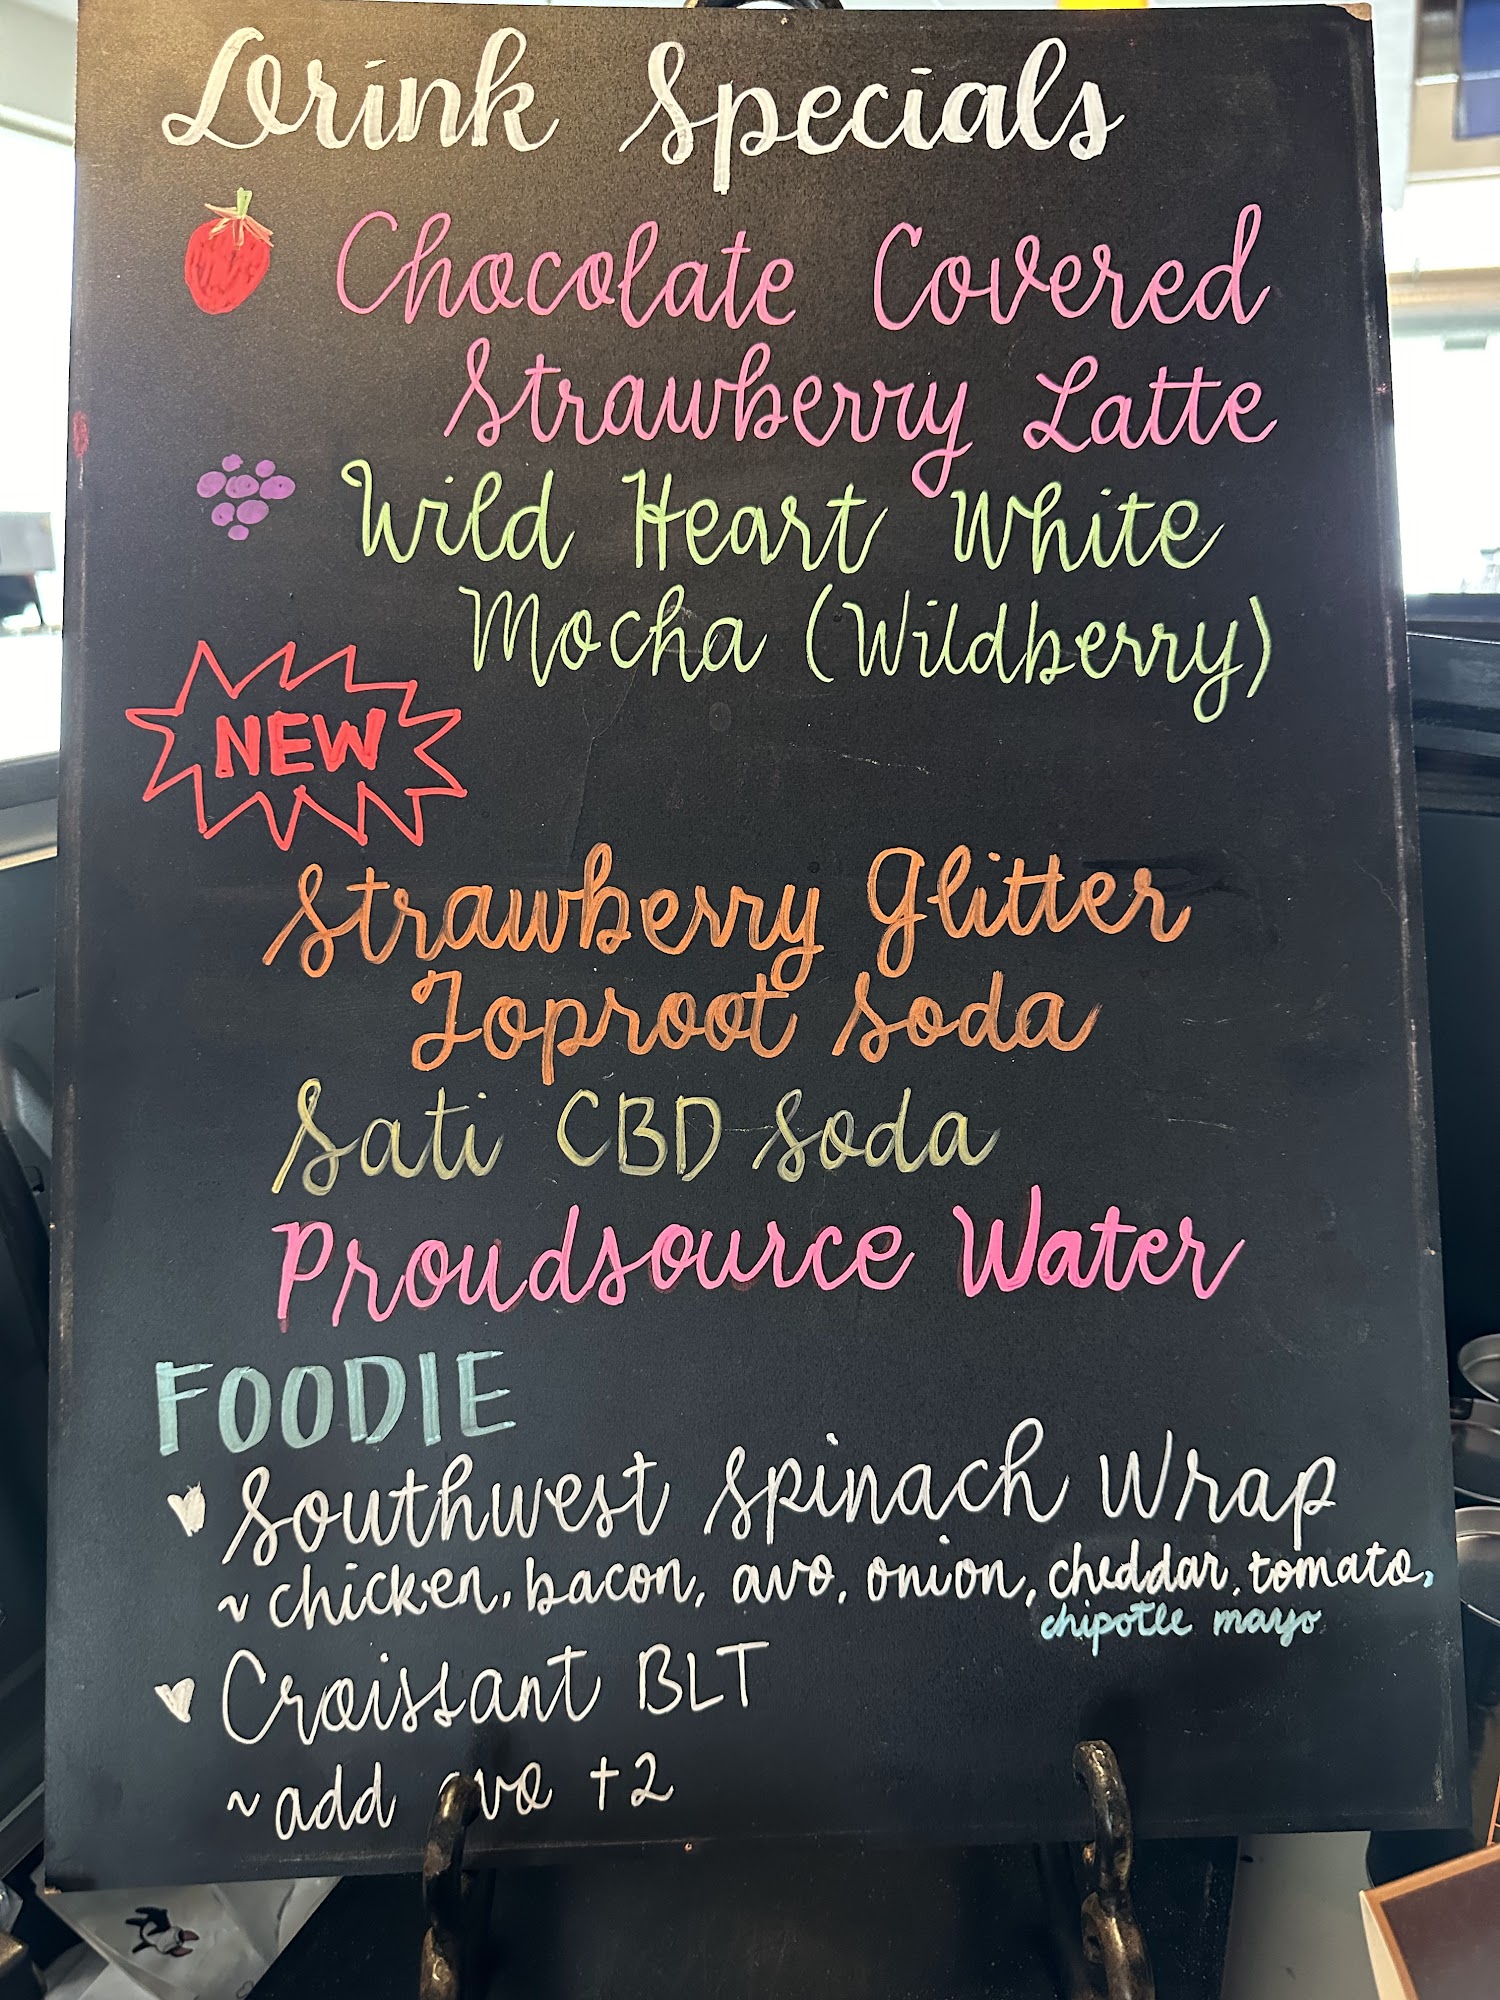 Drink Specials
Chocolate Covered
Strawberry Latte
Wild Heart White
Mocha (Wildberry)
NEW
Strawberry Glitter
Toproot Soda
Sati CBD Soda
Proudsource Water
FOODIE
Southwest Spinach Wrap
~ chicken, bacon, avo, onion, cheddar, tomato,
chipotle mayo
Croissant BLT
~ add avo +2